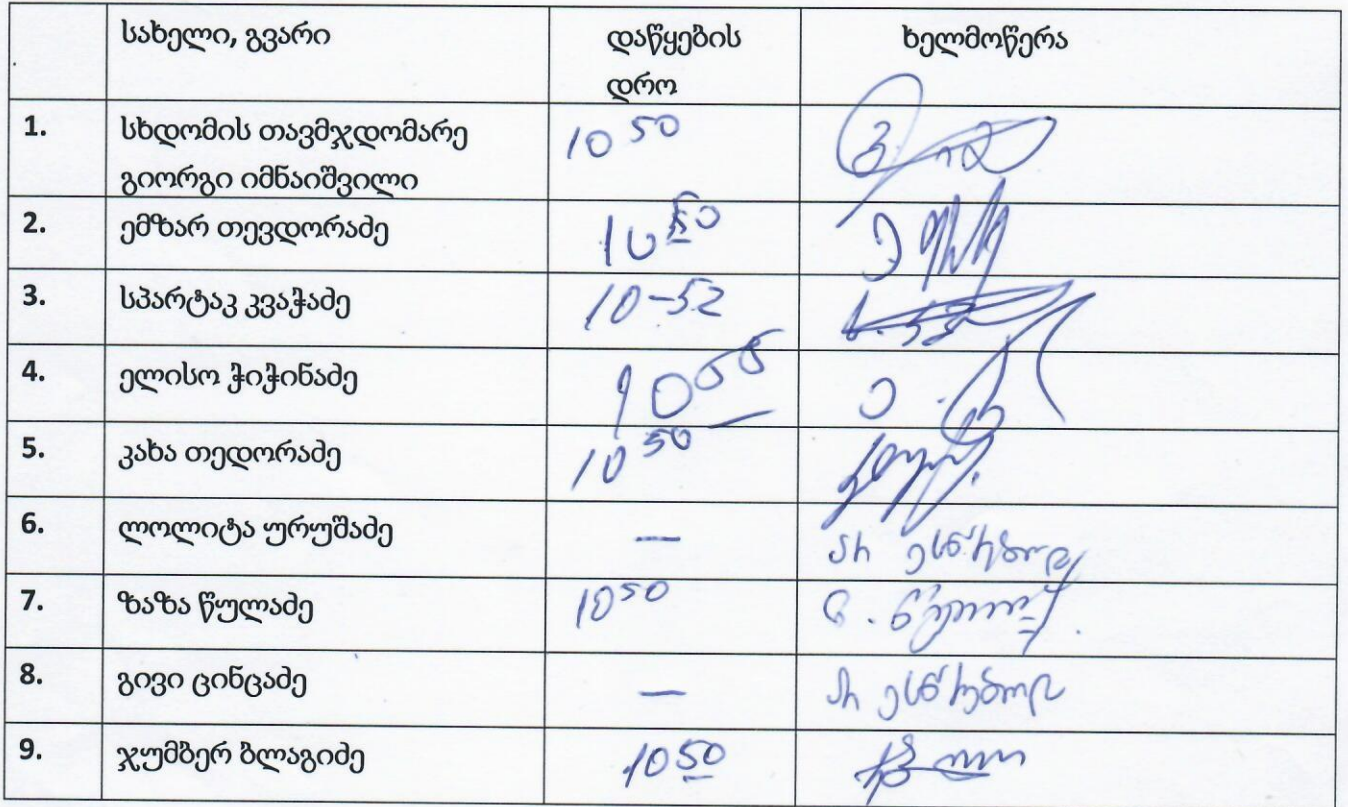 სახელი, გვარი დაწყების ხელმოწერა
დრო
1. სხდომის თავმჯდომარე 10 50
გიორგი იმნაიშვილი
2. ემზარ თევდორაძე 10 50
3. სპარტაკ კვაჭაძე 10-52
4. ელისო ჭიჭინაძე
5. კახა თედორაძე 10 50
6. ლოლიტა ურუშაძე — არ ესწრებოდა
7. ზაზა წულაძე 10 50
8. გივი ცინცაძე — არ ესწრებოდა
9. ჯუმბერ ბლაგიძე 10 50